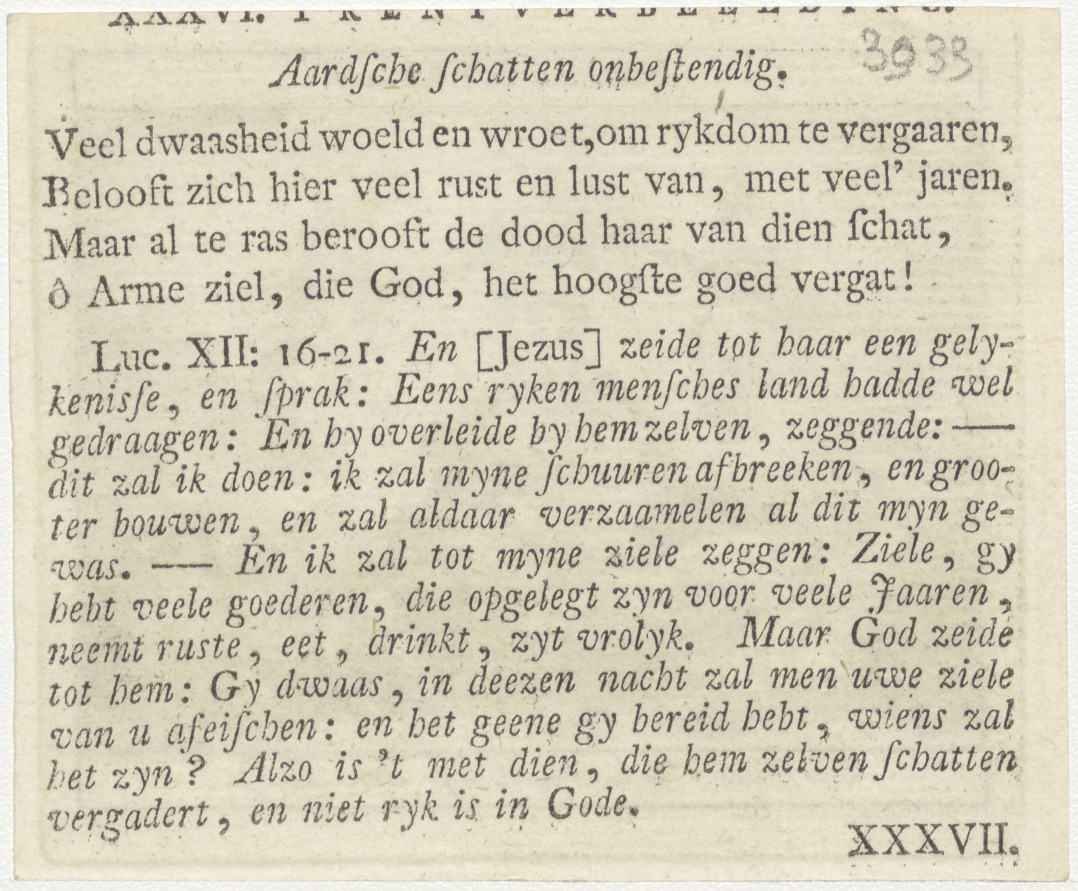 XXXVI. PRENTVERBEELDING.
3933
Aardſche ſchatten onbeſtendig.
Veel dwaasheid woeld en wroet, om rykdom te vergaaren,
Belooft zich hier veel rust en lust van, met veel’ jaren.
Maar al te ras berooft de dood haar van dien ſchat,
ô Arme ziel, die God, het hoogſte goed vergat!
Luc. XII: 16-21. En [Jezus] zeide tot haar een gely-
kenisſe, en ſprak: Eens ryken menſches land hadde wel
gedraagen: En hy overleide by hem zelven, zeggende: —
dit zal ik doen: ik zal myne ſchuuren afbreeken, en groo-
ter bouwen, en zal aldaar verzaamelen al dit myn ge-
was. — En ik zal tot myne ziele zeggen: Ziele, gy
hebt veele goederen, die opgelegt zyn voor veele Jaaren,
neemt ruste, eet, drinkt, zyt vrolyk. Maar God zeide
tot hem: Gy dwaas, in deezen nacht zal men uwe ziele
van u afeiſchen: en het geene gy bereid hebt, wiens zal
het zyn? Alzo is ’t met dien, die hem zelven ſchatten
vergadert, en niet ryk is in Gode.
XXXVII.